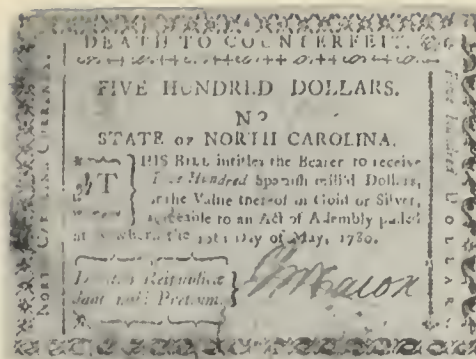 DEATH TO COUNTERFEIT.
FIVE HUNDRED DOLLARS.
No
STATE OF NORTH CAROLINA.
THIS BILL intitles the Bearer to receive
Five Hundred Spanish mill'd Dollars,
or the Value thereof in Gold or Silver,
agreeable to an Act of Assembly passed
at Newbern the 10th Day of May, 1780.
Reipublicæ
Pretium.
NORTH CAROLINA CURRENCY.
Five Hundred DOLLARS